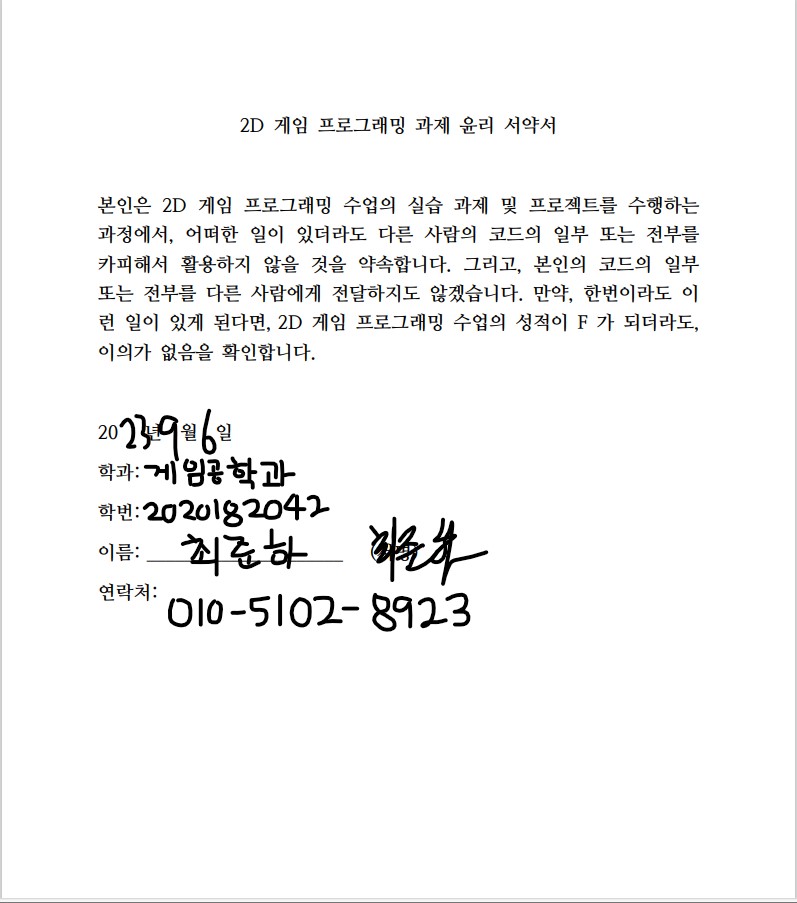 2D 게임 프로그래밍 과제 윤리 서약서
본인은 2D 게임 프로그래밍 수업의 실습 과제 및 프로젝트를 수행하는
과정에서, 어떠한 일이 있더라도 다른 사람의 코드의 일부 또는 전부를
카피해서 활용하지 않을 것을 약속합니다. 그리고, 본인의 코드의 일부
또는 전부를 다른 사람에게 전달하지도 않겠습니다. 만약, 한번이라도 이
런 일이 있게 된다면, 2D 게임 프로그래밍 수업의 성적이 F 가 되더라도,
이의가 없음을 확인합니다.
2023년 9월 6일
학과: 게임공학과
학번: 2020182042
이름: 최준하
연락처:
010-5102-8923